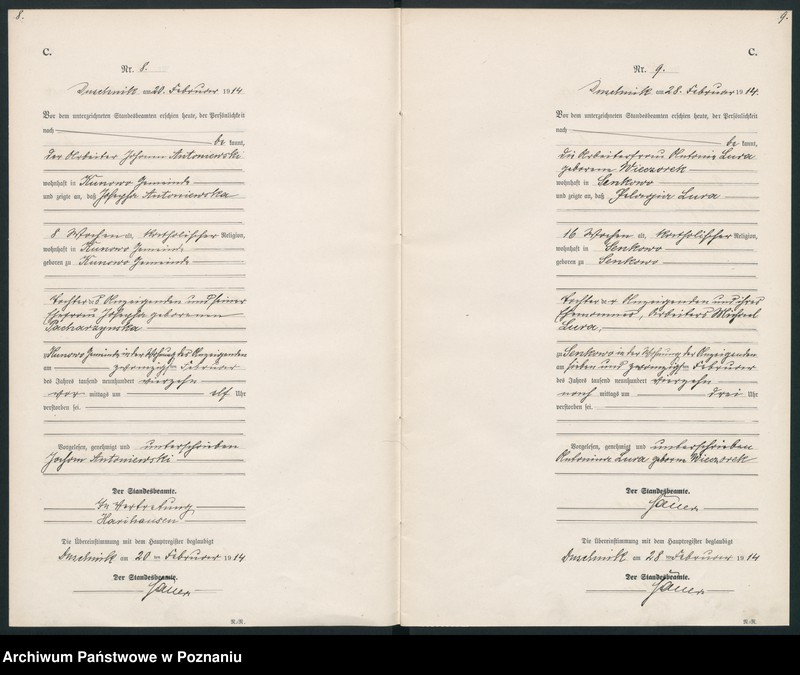 8.
C.
Nr. 8.
Duschnik am 20. Februar 1914.
Vor dem unterzeichneten Standesbeamten erschien heute, der Persönlichkeit
nach
be kannt,
der Arbeiter Johann Antoniewski
wohnhaft in Kunowo Gemeinde
und zeigte an, daß Josepha Antoniewska
8 Wochen alt, katholischer Religion,
wohnhaft in Kunowo Gemeinde
geboren zu Kunowo Gemeinde
Tochter des Anzeigenden und seiner
Ehefrau Josepha geborenen
Pacharzynska
Kunowo Gemeinde in der Wohnung des Anzeigenden
am zwanzigsten Februar
des Jahres tausend neunhundert vierzehn
vor mittags um elf Uhr
verstorben sei.
Vorgelesen, genehmigt und unterschrieben
Johann Antoniewski
Der Standesbeamte.
In Vertretung
Die Übereinstimmung mit dem Hauptregister beglaubigt
Duschnik am 20 ten Februar 1914
Der Standesbeamte.
Sauer
R.-R.
9.
C.
Nr. 9.
Duschnik am 28. Februar 1914.
Vor dem unterzeichneten Standesbeamten erschien heute, der Persönlichkeit
nach
be kannt,
die Arbeiterfrau Antonie Lura
geborene Wieczorek
wohnhaft in Senkowo
und zeigte an, daß Pelagia Lura
16 Wochen alt, katholischer Religion,
wohnhaft in Senkowo
geboren zu Senkowo
Tochter der Anzeigenden und ihres
Ehemannes, Arbeiters Michael
Lura,
zu Senkowo in der Wohnung der Anzeigenden
am sieben und zwanzigsten Februar
des Jahres tausend neunhundert vierzehn
nach mittags um drei Uhr
verstorben sei.
Vorgelesen, genehmigt und unterschrieben
Antonina Lura geborene Wieczorek
Der Standesbeamte.
Sauer
Die Übereinstimmung mit dem Hauptregister beglaubigt
Duschnik am 28 ten Februar 1914
Der Standesbeamte.
Sauer
R.-R.
Archiwum Państwowe w Poznaniu